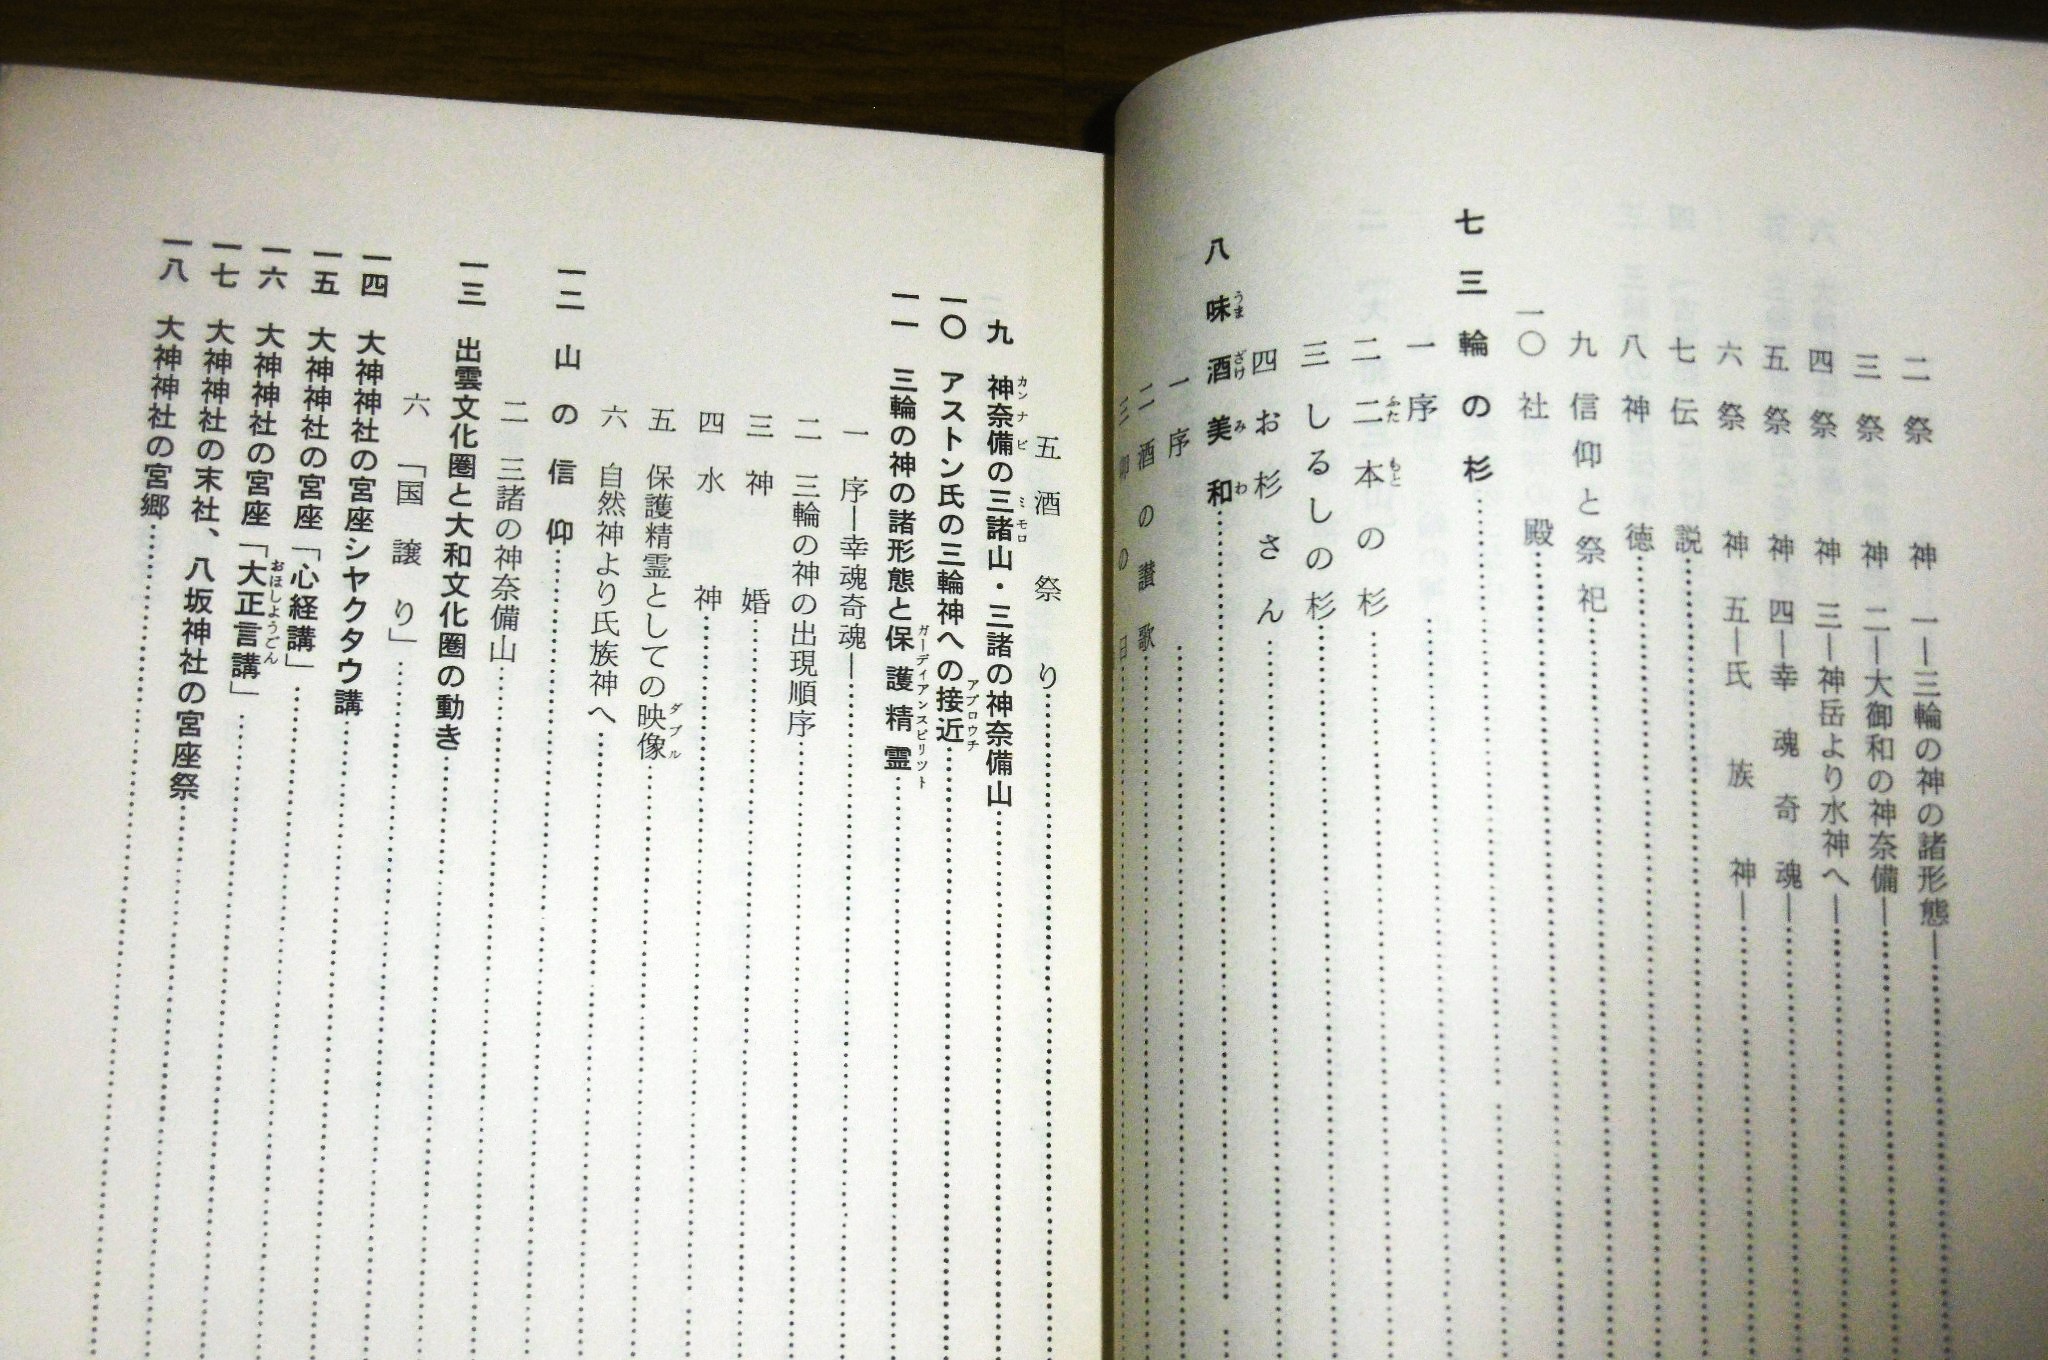 二 祭神 一―三輪の神の諸形態―
三 祭神 二―大御和の神奈備―
四 祭神 三―神岳より水神へ―
五 祭神 四―幸魂奇魂―
六 祭神 五―氏族神―
七 伝説
八 神徳
九 信仰と祭祀
一〇 社殿
七 三輪の杉
一 序
二 二本の杉
ふた もと
三 しるしの杉
四 お杉さん
八 味酒美和
うま ざけ み わ
一 序
二 酒の讃歌
三 卯の日
五 酒祭り
九 神奈備の三諸山・三諸の神奈備山
カンナビ ミモロ
一〇 アストン氏の三輪神への接近
アプロウチ
一一 三輪の神の諸形態と保護精霊
ガーディアンスピリット
一 序―幸魂奇魂―
二 三輪の神の出現順序
三 神婚
四 水神
五 保護精霊としての映像
ダブル
六 自然神より氏族神へ
一二 山の信仰
二 三諸の神奈備山
一三 出雲文化圏と大和文化圏の動き
六 「国譲り」
一四 大神神社の宮座シヤクタウ講
一五 大神神社の宮座「心経講」
一六 大神神社の宮座「大正言講」
おほしようごん
一七 大神神社の末社、八坂神社の宮座祭
一八 大神神社の宮郷